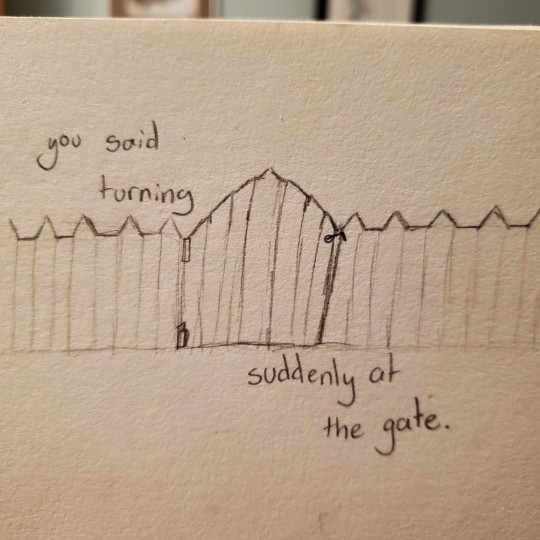 you said
turning
suddenly at
the gate.